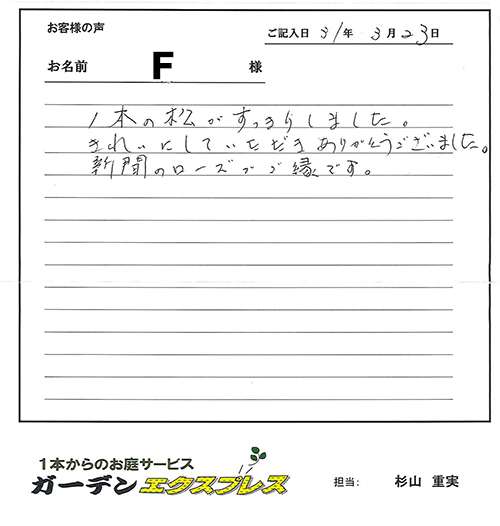 お客様の声
ご記入日 31年 3月23日
お名前 F 様
1本の松がすっきりしました。
きれいにしていただきありがとうございました。
新聞のローズでご縁です。
1本からのお庭サービス
ガーデンエクスプレス
担当: 杉山 重実